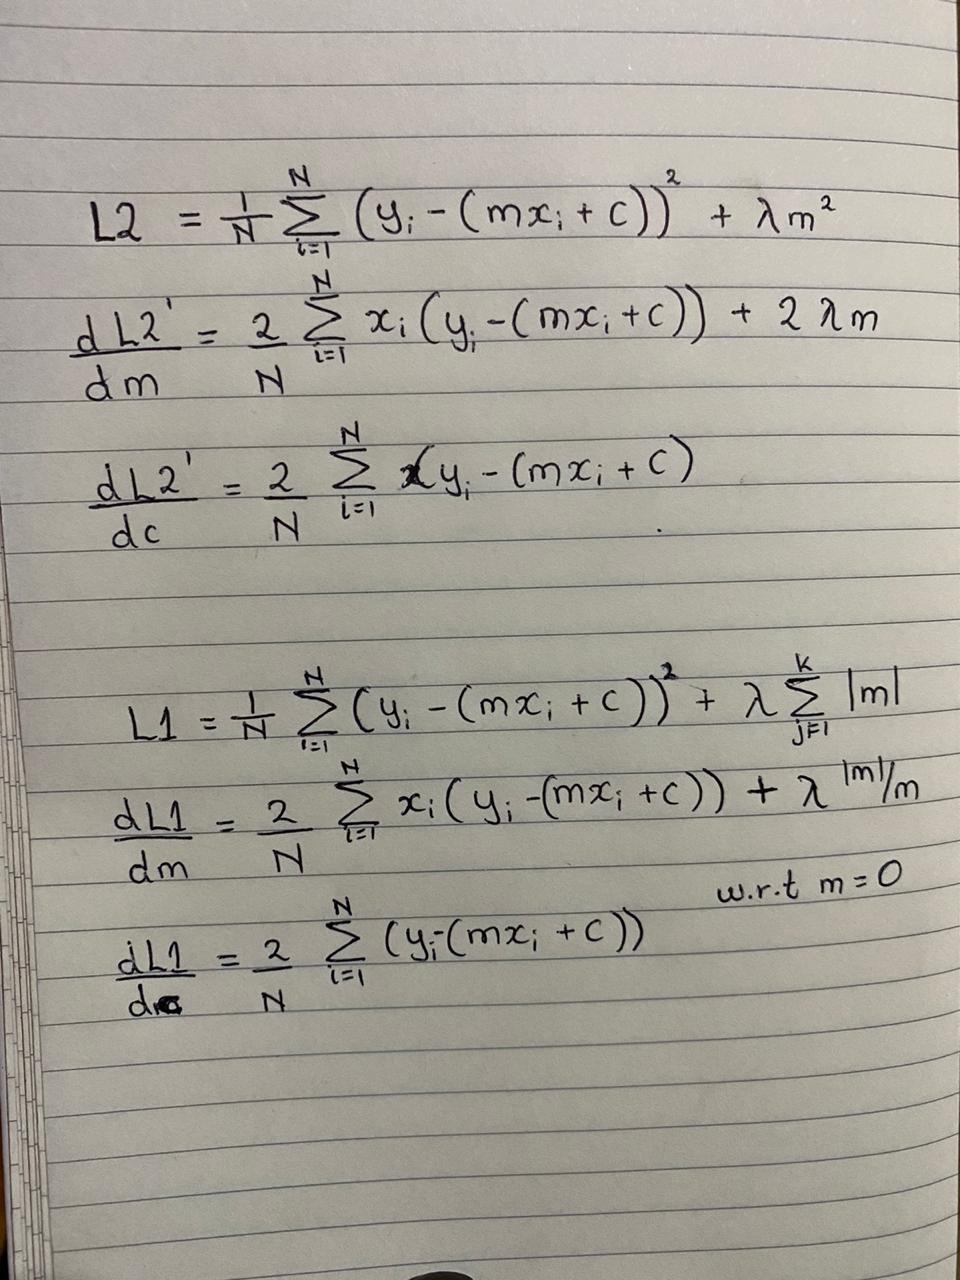 L2 = 1/N ∑_{i=1}^{N} (y_i - (mx_i + c))² + λm²
dL2'/dm = 2/N ∑_{i=1}^{N} x_i (y_i - (mx_i + c)) + 2λm
dL2'/dc = 2/N ∑_{i=1}^{N} (y_i - (mx_i + c)
L1 = 1/N ∑_{i=1}^{N} (y_i - (mx_i + c))² + λ ∑_{j=1}^{k} |m|
dL1/dm = 2/N ∑_{i=1}^{N} x_i (y_i - (mx_i + c)) + λ |m|/m
w.r.t m = 0
dL1/dc = 2/N ∑_{i=1}^{N} (y_i - (mx_i + c))